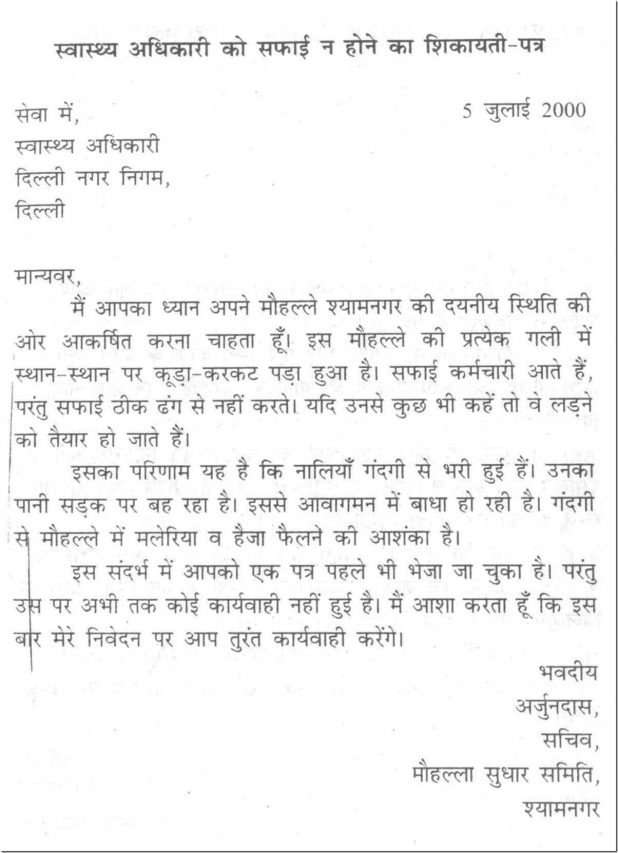 स्वास्थ्य अधिकारी को सफाई न होने का शिकायती-पत्र
सेवा में, 5 जुलाई 2000
स्वास्थ्य अधिकारी
दिल्ली नगर निगम,
दिल्ली
मान्यवर,
मैं आपका ध्यान अपने मौहल्ले श्यामनगर की दयनीय स्थिति की
ओर आकर्षित करना चाहता हूँ। इस मौहल्ले की प्रत्येक गली में
स्थान-स्थान पर कूड़ा-करकट पड़ा हुआ है। सफाई कर्मचारी आते हैं,
परंतु सफाई ठीक ढंग से नहीं करते। यदि उनसे कुछ भी कहें तो वे लड़ने
को तैयार हो जाते हैं।
इसका परिणाम यह है कि नालियाँ गंदगी से भरी हुई हैं। उनका
पानी सड़क पर बह रहा है। इससे आवागमन में बाधा हो रही है। गंदगी
से मौहल्ले में मलेरिया व हैजा फैलने की आशंका है।
इस संदर्भ में आपको एक पत्र पहले भी भेजा जा चुका है। परंतु
उस पर अभी तक कोई कार्यवाही नहीं हुई है। मैं आशा करता हूँ कि इस
बार मेरे निवेदन पर आप तुरंत कार्यवाही करेंगे।
भवदीय
अर्जुनदास,
सचिव,
मौहल्ला सुधार समिति,
श्यामनगर